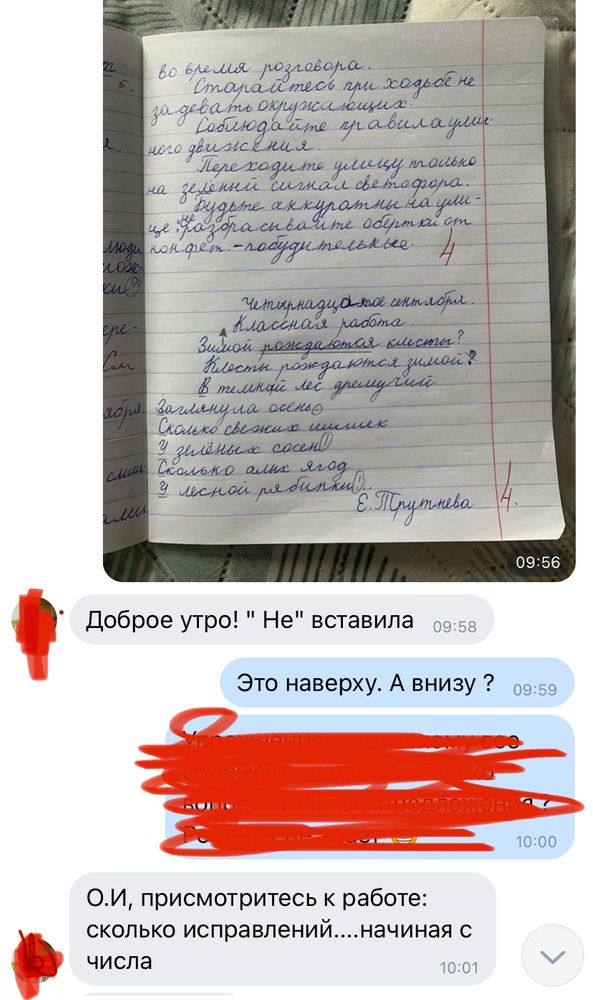 во время разговора.
Старайтесь при ходьбе не
задевать окружающих.
Соблюдайте правила улич-
ного движения.
Переходите улицу только
на зелёный сигнал светофора.
Будьте аккуратны на ули-
це: не разбрасывайте обертки от
конфет. – побудительные.
4
Четырнадцатое сентября.
Классная работа.
Зимой рождаются клесты?
Клесты рождаются зимой?
В темный лес дремучий
Заглянула осень.
Сколько свежих шишек
У зелёных сосен!
Сколько алых ягод
У лесной рябинки!..
Е. Трутнева
4.
09:56
Доброе утро! " Не" вставила
09:58
Это наверху. А внизу ?
09:59
10:00
О.И, присмотритесь к работе:
сколько исправлений....начиная с
числа
10:01